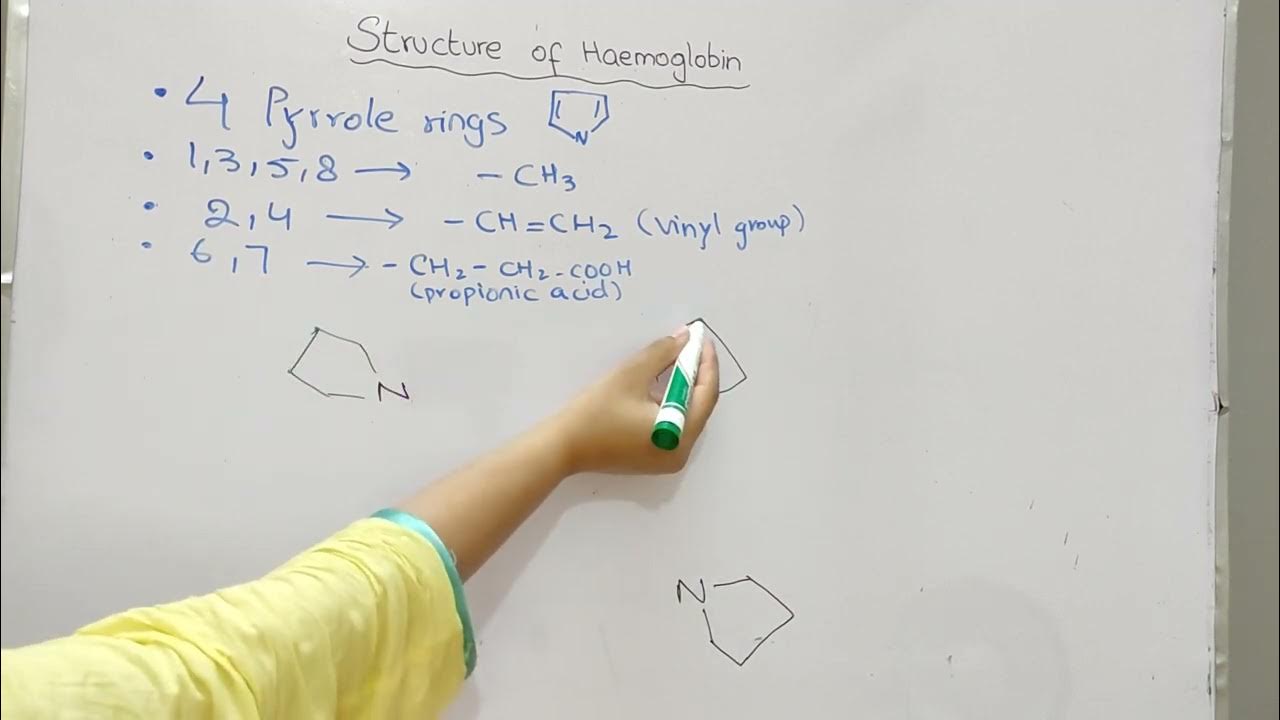 Structure of Haemoglobin
• 4 Pyrrole rings N
• 1,3,5,8 → -CH3
• 2,4 → -CH=CH2 (vinyl group)
• 6,7 → -CH2-CH2-COOH
(propionic acid)
N
N